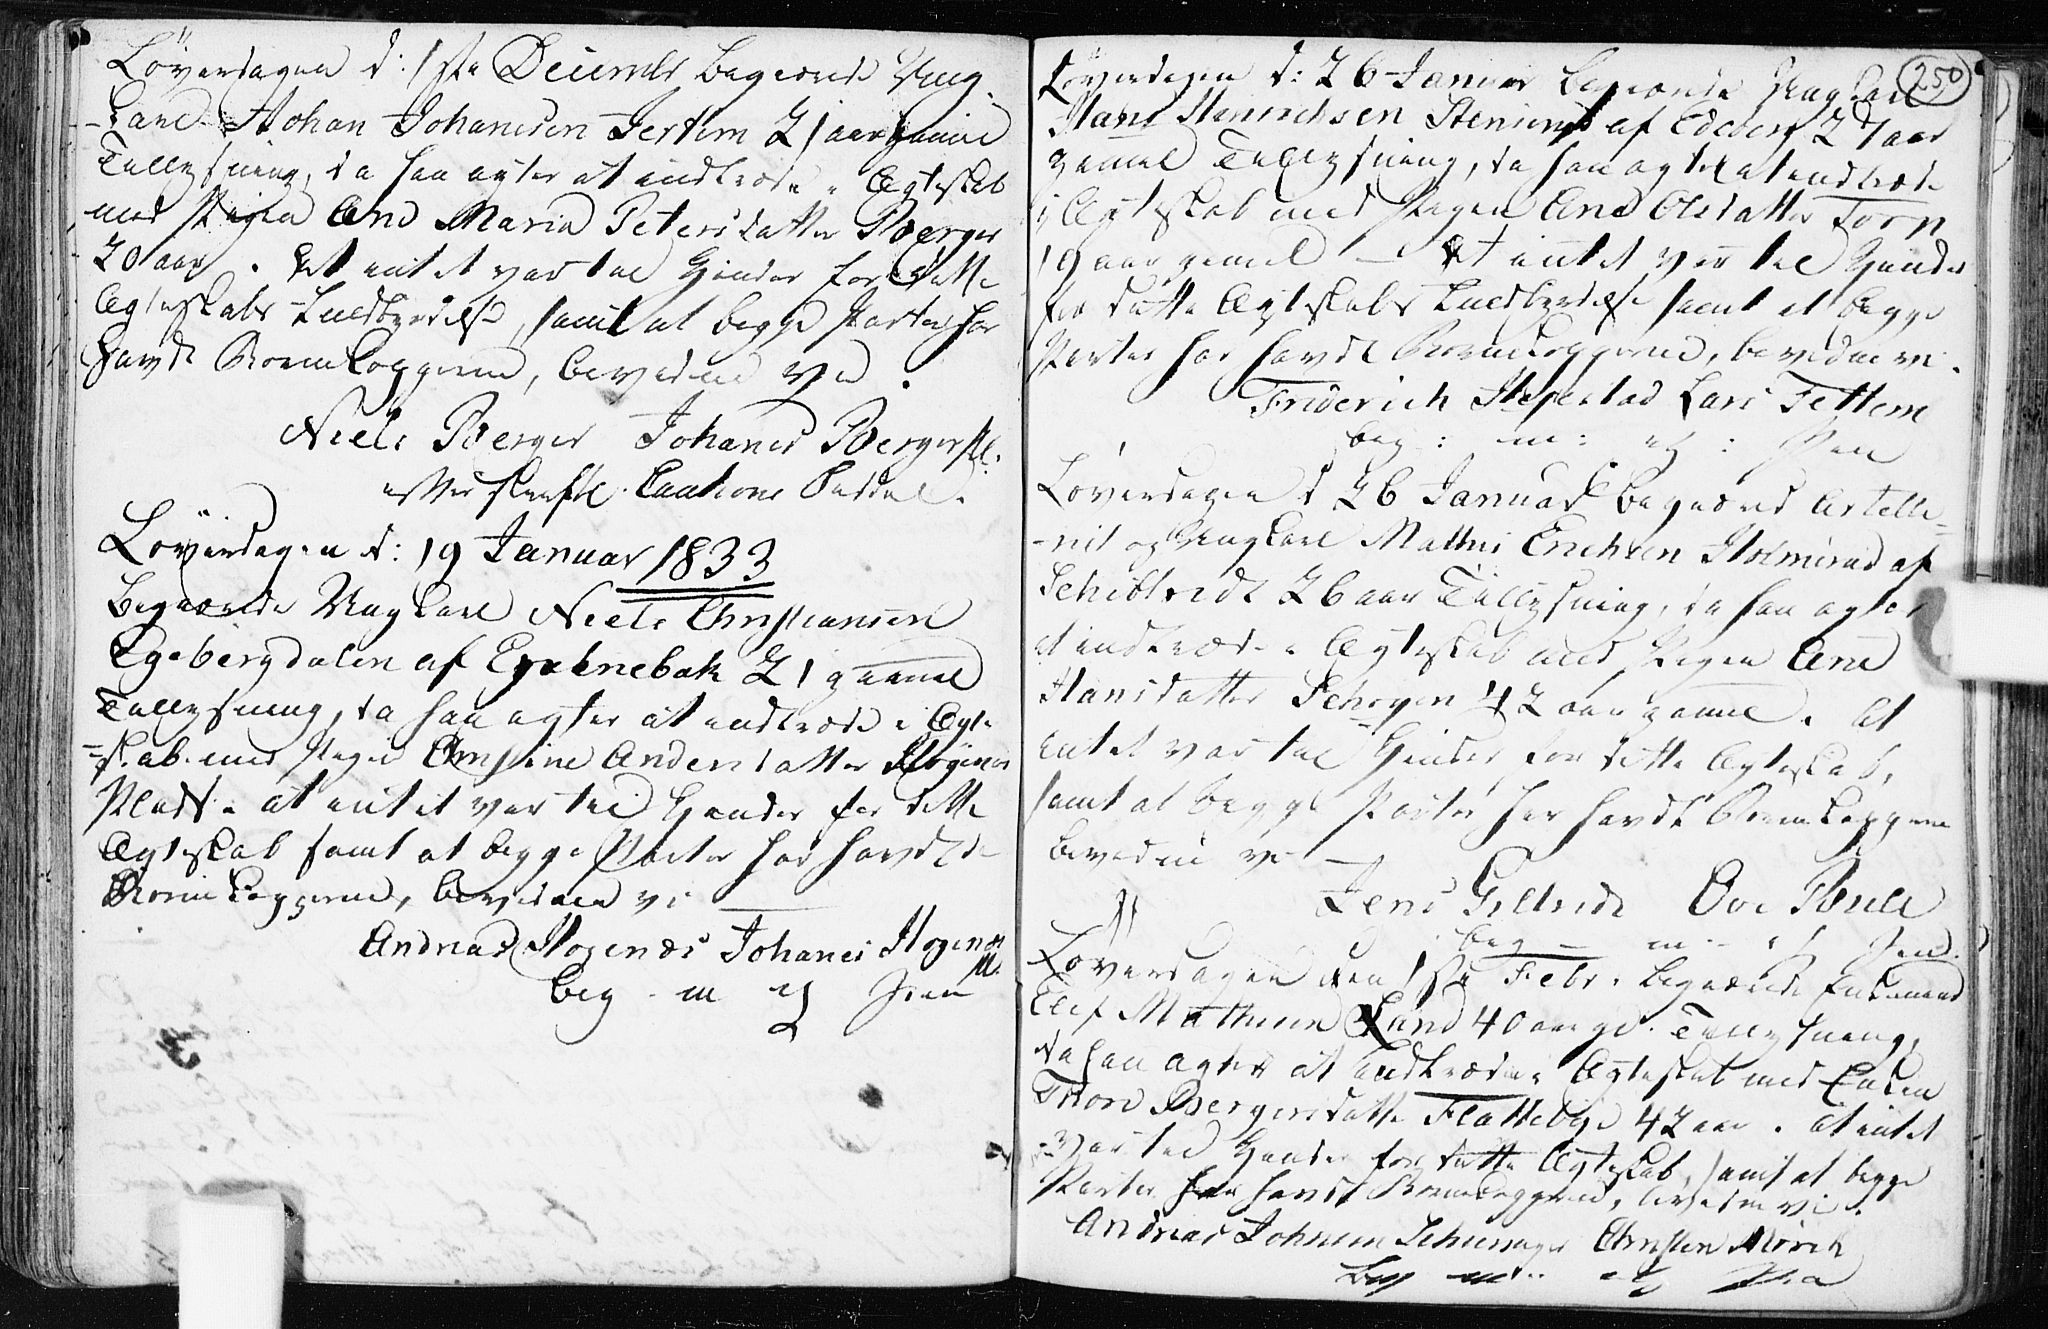 Løverdagen d: 1ste Decembr begærede Ung-
-karl Johan Johanesen Jertem 21 aar gamel
Tillysning, da han agter at indtræde i Ægteskab
med Pigen Ane Maria Petersdatter Berger
20 aar. At intet var til Hinder for dette
Ægteskabs Fuldbyrdelse, samt at begge Parter har
havdt Børnekopperne, bevidner vi.
Niels Berger Johanes Berger
efter skriftl. Cautions Seddel.
Løverdagen d: 19 Januar 1833
begærede Ungkarl Niels Christiansen
Egebergdalen af 21 gamel
Tillysning, da han agter at indtræde i Ægte-
=skab med Pigen Christine Andersdatter Høgenes
Plads. at intet var til Hinder for dette
Ægteskab samt at begge Parter har havdt de
Børnekopperne, bevidner vi
Andreas Hogenæs Johanes Hogenæs
beg m P: Pen
Løverdagen d: 26 Januar begærede Ungkarl
250
Hans Henrichsen af Edeberg 27 aar
gamel Tillysning, da han agter at indtræde
i Ægteskab med Pigen Ane Olsdatter Torp
19 aar gamel — At intet var til Hinder
for dette Ægteskabs Fuldbyrdelse samt at begge
Parter har havdt Børnekopperne, bevidner vi.
Friderich Lars Tettem
beg: m: P: Pen
Løverdagen d 26 Januar begæred Artille-
-rist og Ungkarl Mathis Erichsen Holmsrud af
Schibstvedt 26 aar Tillysning, da han agter
at indtræde i Ægteskab med Pigen Ane
Hansdatter Schogen 42 aar gamel. At
intet var til Hinder for dette Ægteskab,
samt at begge Parter har havdt Børnekopperne
bevidner vi —
Jens Giltvedt Ove
beg m: P: Pen
Løverdagen den 1ste Febr. begærede Enkemand
Elef Mathisen Rand 40 aar gl. Tillysning,
da han agter at indtræde i Ægteskab med Enken
Thore Bergersdatter Flattebye 42 aar. at intet
var til Hinder for dette Ægteskab, samt at begge
Parter har havdt Børnekopperne, bevidner vi.
Andreas Johnsen Christen Mörch
beg m: P: Pen